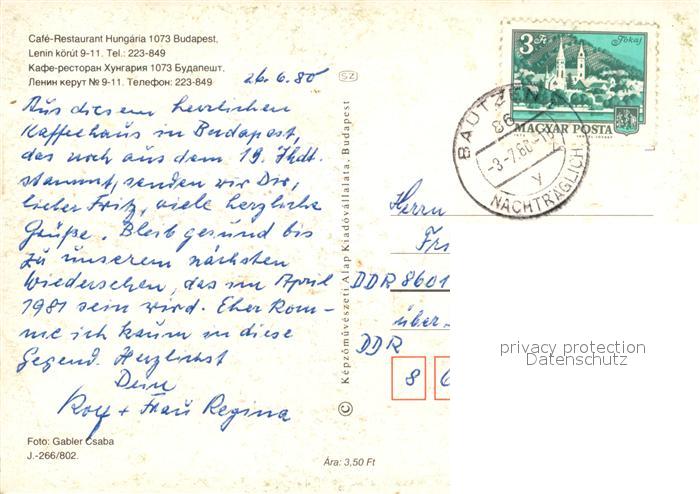 Café-Restaurant Hungária 1073 Budapest,
Lenin körút 9-11. Tel.: 223-849
Кафе-ресторан Хунгария 1073 Будапешт.
Ленин керут № 9-11. Телефон: 223-849
26.6.80
Aus diesem herrlichen
Kaffeehaus in Budapest,
das noch aus dem 19. Jhdt.
stammt, senden wir Dir,
lieber Fritz, viele herzliche
Grüße. Bleib gesund bis
zu unserem nächsten
Wiedersehen, das im April
1981 sein wird. Eher kom-
me ich kaum in diese
Gegend. Herzlichst
Dein
Rolf + Frau Regina
Foto: Gabler Csaba
J.-266/802.
SZ
© Képzőművészeti Alap Kiadóvállalata, Budapest
Ára: 3,50 Ft
3 Ft
Tokaj
MAGYAR POSTA
BAUTZEN
86
-3-7.80-
y
NACHTRÄGLICH
Herrn
DDR 8601
über
DDR
8 6
privacy protection
Datenschutz